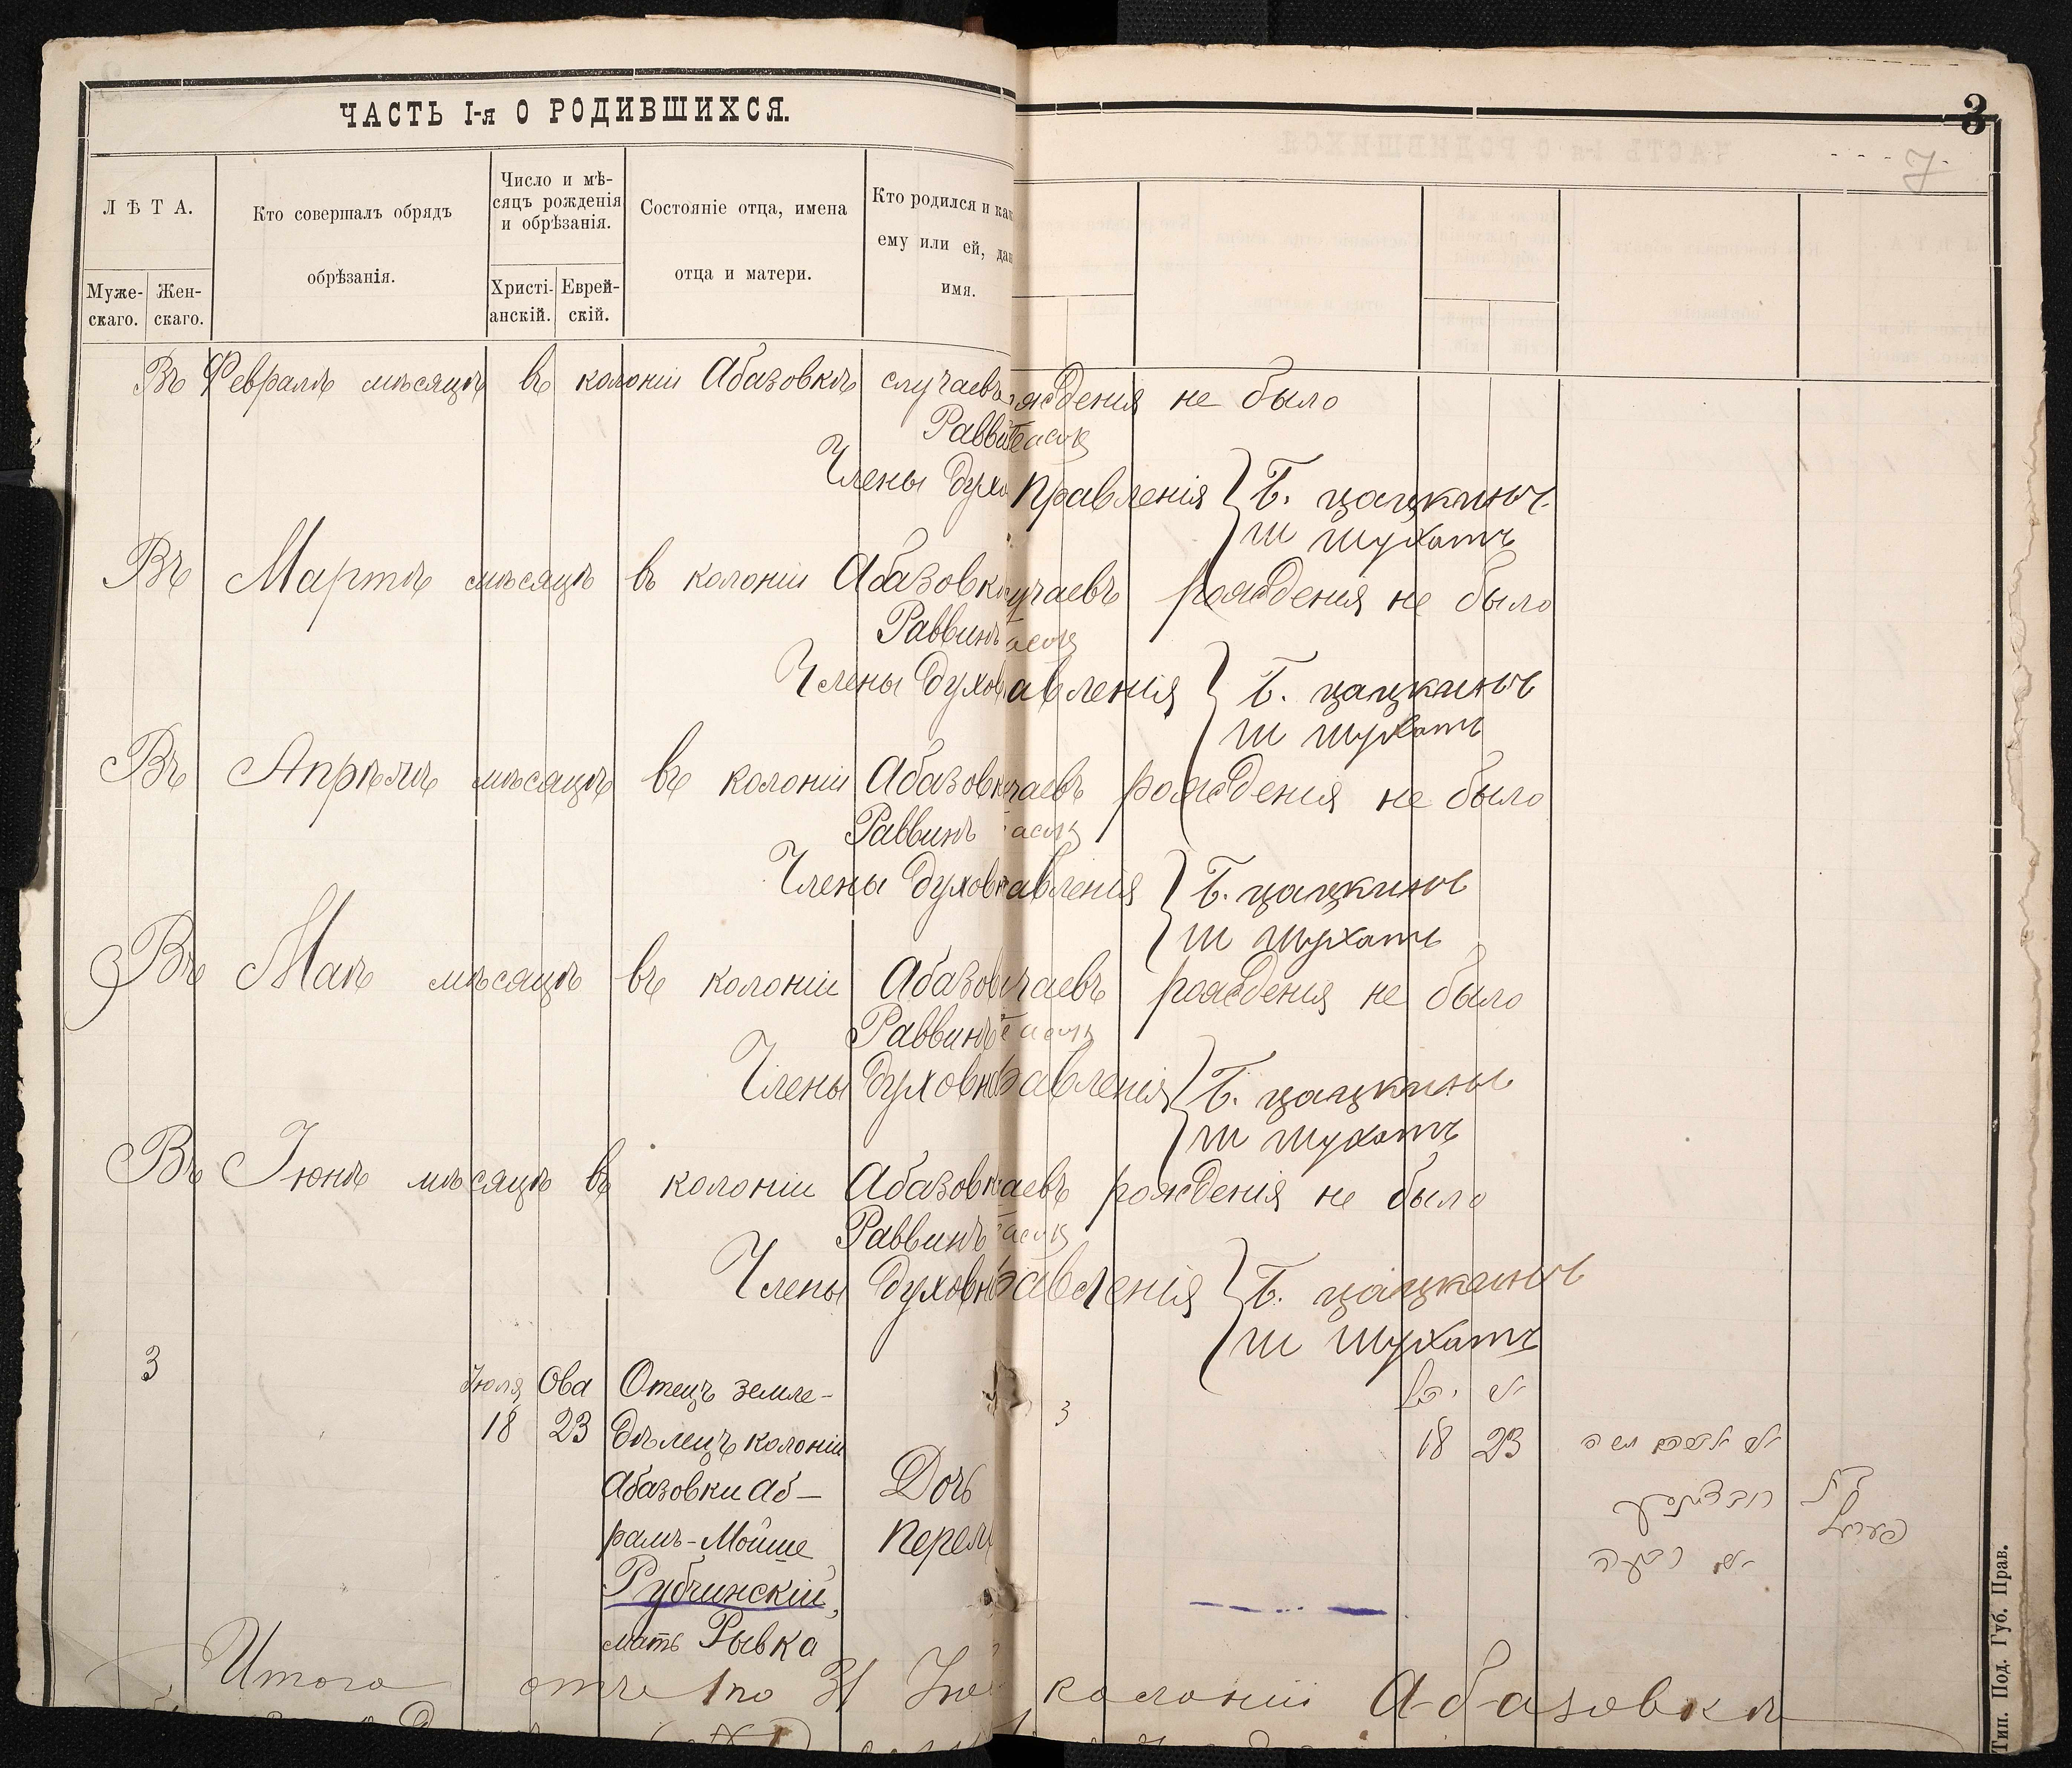 ЧАСТЬ I-я О РОДИВШИХСЯ.
3
7
ЛѢТА.
Муже-
скаго.
Жен-
скаго.
Кто совершалъ обрядъ
обрѣзанія.
Число и мѣ-
сяцъ рожденія
и обрѣзанія.
Христі-
анскій.
Еврей-
скій.
Состояніе отца, имена
отца и матери.
Кто родился и как
ему или ей, дан
имя.
Въ Февралѣ мѣсяцѣ въ колоніи Абазовкѣ случаевъ рожденія не было
Раввинъ
Члены духо правленія } Б. Цацкинъ
Ш Шухатъ
Въ Мартѣ мѣсяцѣ въ колоніи Абазовк учаевъ рожденія не было
Раввинъ
Члены духов авленія } Б. Цацкинъ
Ш Шухатъ
Въ Апрѣлѣ мѣсяцѣ въ колоніи Абазовк чаевъ рожденія не было
Раввинъ
Члены духовн авленія } Б. Цацкинъ
Ш Шухатъ
Въ Маѣ мѣсяцѣ въ колоніи Абазов чаевъ рожденія не было
Раввинъ
Члены духовн авленія } Б. Цацкинъ
Ш Шухатъ
Въ Іюнѣ мѣсяцѣ въ колоніи Абазовк аевъ рожденія не было
Раввинъ
Члены духовн авленія } Б. Цацкинъ
Ш Шухатъ
3
Іюля
18
Ова
23
Отецъ земле-
дѣлецъ колоніи
Абазовки Аб-
рамъ-Мойше
Рубчинскій,
мать Рывка
Дочь
Перел
3
18 23
Итого отъ 1 по 31 колоніи Абазовкѣ
Тип. Под. Губ. Прав.